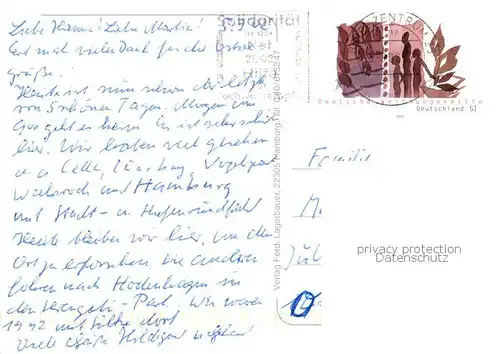 Liebe Hanna! Liebe Martin!
Erst mal vielen Dank für die Ostergrüße.
Heute ist nun schon der letzte
von 5 schönen Tagen. Morgen um
geht es heim. Es ist sehr schön
hier. Wir haben viel gesehen
u. a. Celle, Lüneburg, Vogelpark
Walsrode und Hamburg
mit Stadt- u. Hafenrundfahrt
Heute bleiben wir hier, um den
Ort zu erforschen. Die anderen
fahren nach Hodenhagen in
den Serengeti-Park. Wir waren
1992 mit Silke dort
Viele Grüße
Solidarität
Verlag Ferd. Lagerbauer, 22305 Hamburg
ZENTRUM
Deutsche Welthungerhilfe
Deutschland 51
Familie
privacy protection
Datenschutz